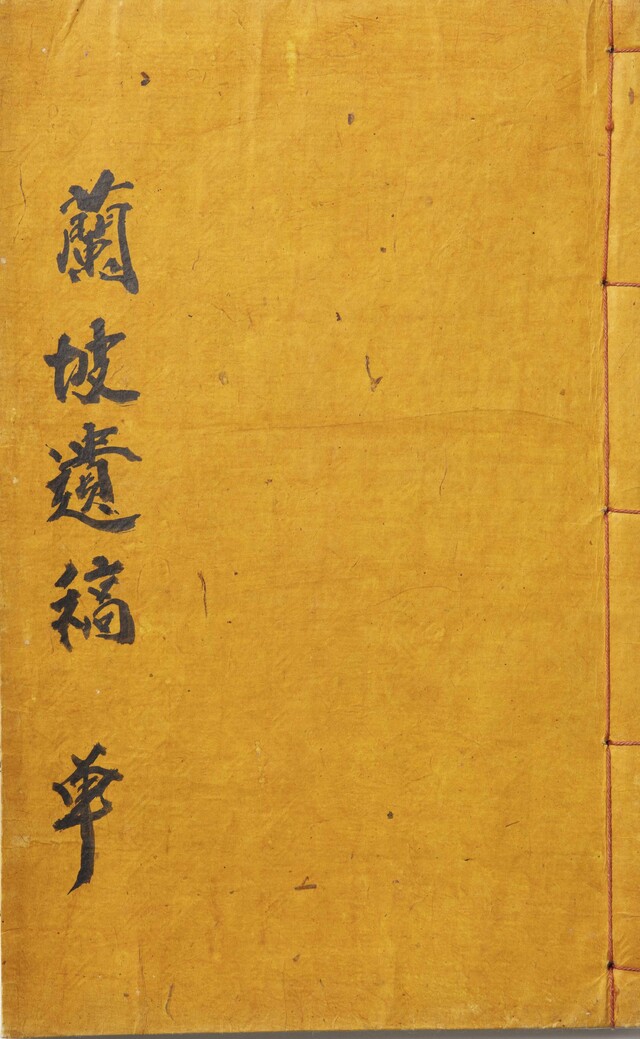 蘭坡遺稿 單